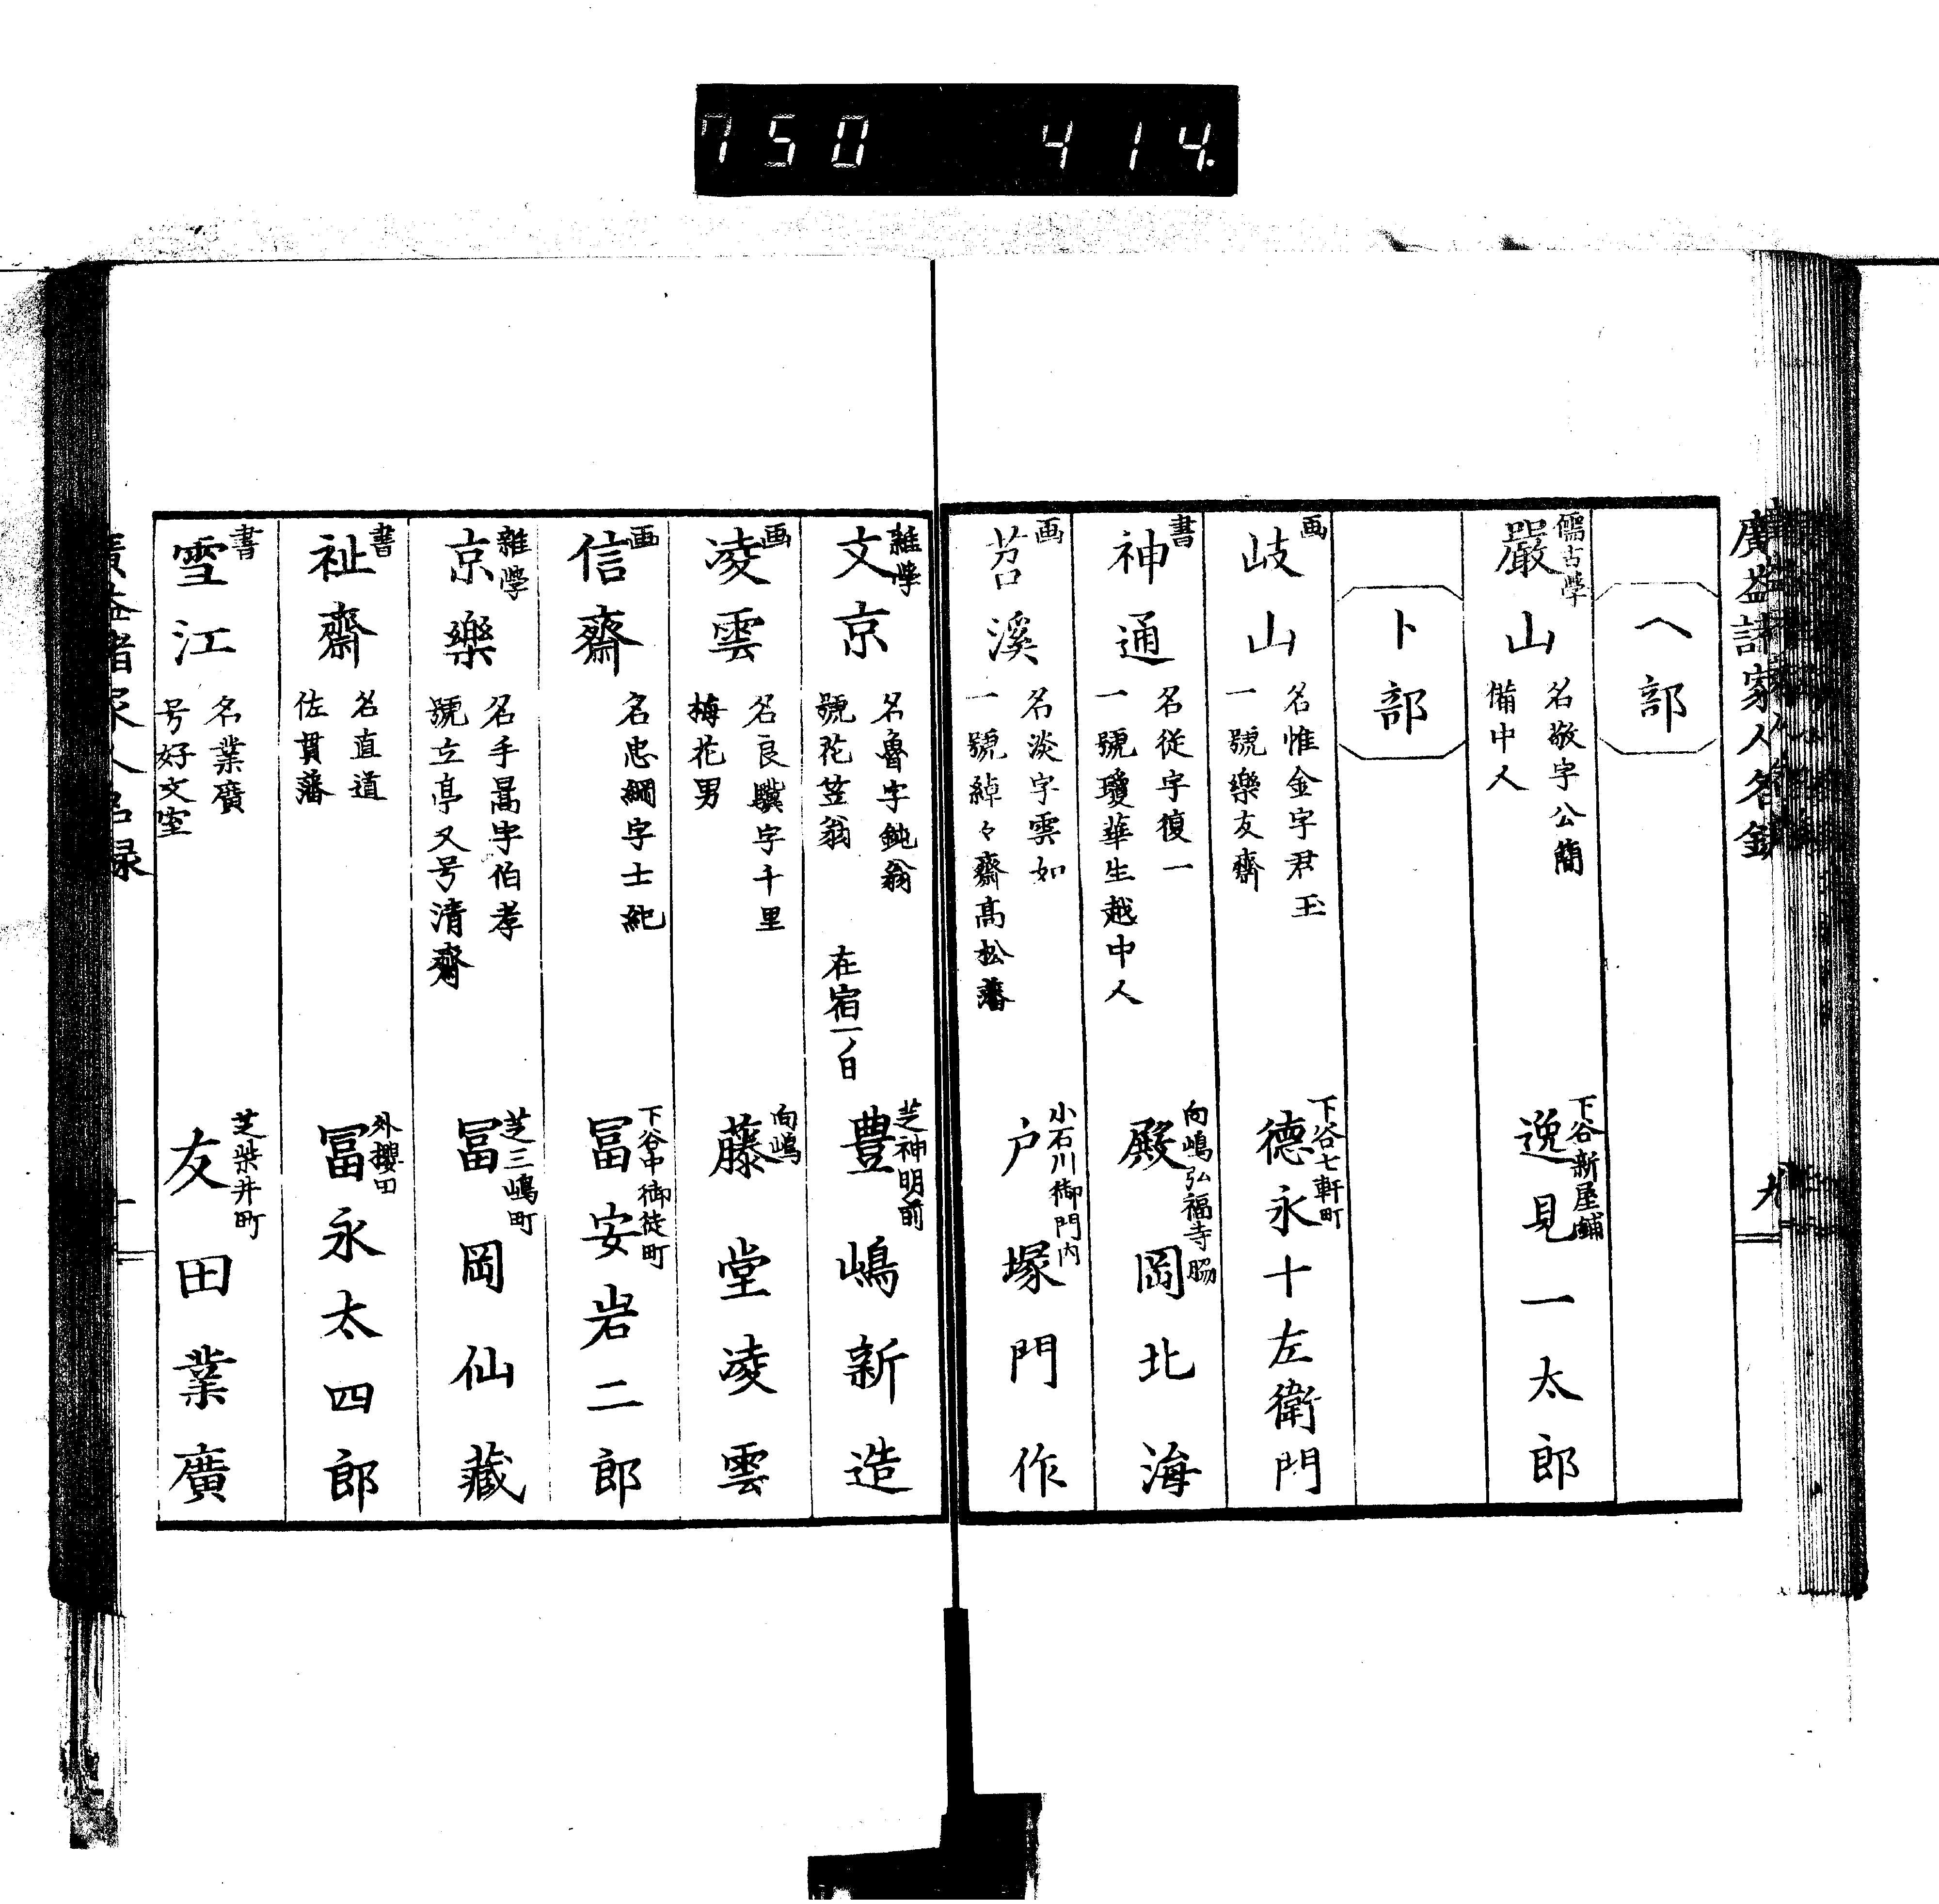 750 414.
廣益諸家人名録
九
ヘ部
儒古學
嚴山
名敬字公簡
備中人
下谷新屋鋪
逸見一太郎
ト部
画
岐山
名惟金字君玉
一號樂友齋
下谷七軒町
德永十左衛門
書
神通
名從字復一
一號瓊華生越中人
向嶋弘福寺脇
殿岡北海
画
苕溪
名淡字雲如
一號綽々齋高松藩
小石川御門内
戸塚門作
雜學
文京
名魯字鈍翁
號花笠翁
在宿一ノ日
芝神明前
豊嶋新造
画
凌雲
名良驥字千里
梅花男
向嶋
藤堂凌雲
画
信齋
名忠綱字士紀
下谷中御徒町
冨安岩二郎
雜學
京樂
名手暠字伯孝
號立亭又号清齋
芝三嶋町
冨岡仙藏
書
祉齋
名直道
佐貫藩
外櫻田
冨永太四郎
書
雪江
名業廣
号好文室
芝柴井町
友田業廣
廣益諸家人名録